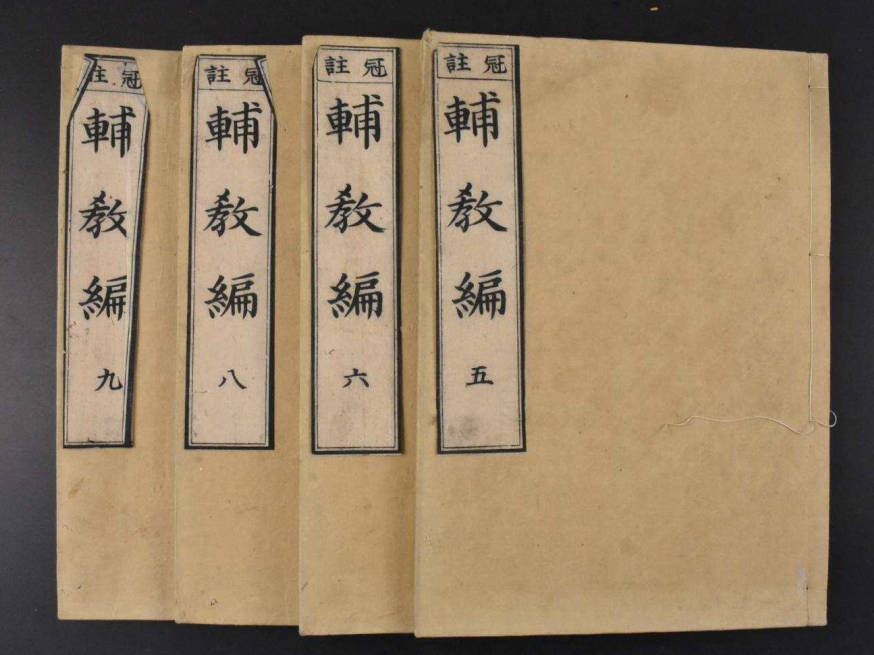 冠註
輔教編
五
冠註
輔教編
六
冠註
輔教編
八
冠註
輔教編
九